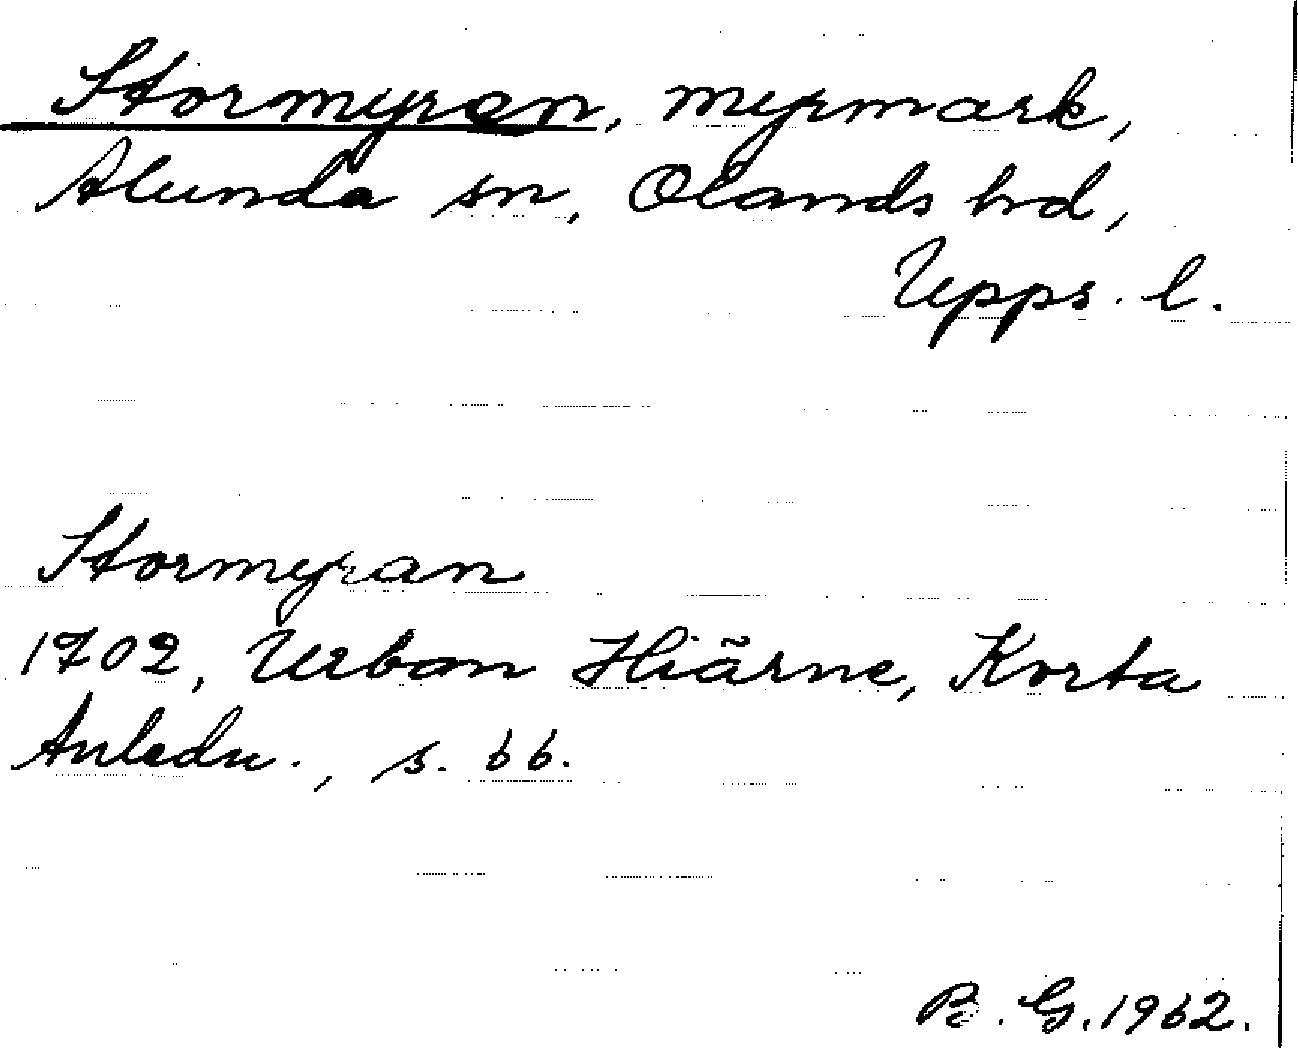 Stormyran, myrmark,
Alunda sn, Olands hd,
Upps. l.
Stormyran
1702, Urban Hiärne, Korta
Anledn., s. 66.
B. G. 1962.